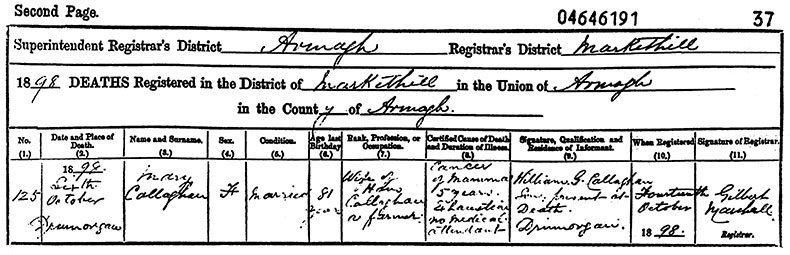 Second Page.
04646191
37
Superintendent Registrar's District Armagh Registrar's District Markethill
1898 DEATHS Registered in the District of Markethill in the Union of Armagh
in the County of Armagh.
No. (1.)
Date and Place of Death. (2.)
Name and Surname. (3.)
Sex. (4.)
Condition. (5.)
Age last Birthday (6.)
Rank, Profession, or Occupation. (7.)
Certified Cause of Death and Duration of Illness. (8.)
Signature, Qualification and Residence of Informant. (9.)
When Registered (10.)
Signature of Registrar. (11.)
125
1898.
Sixth
October
Drumorgan
Mary
Callaghan
F
Married
81
years
Wife of
Callaghan
a farmer
Cancer
of Mamma
5 years.
Exhaustion
no medical
attendant
William G. Callaghan
Son, present at
Death.
Drumorgan.
Fourteenth
October
1898.
Gilbert
Marshall
Registrar.